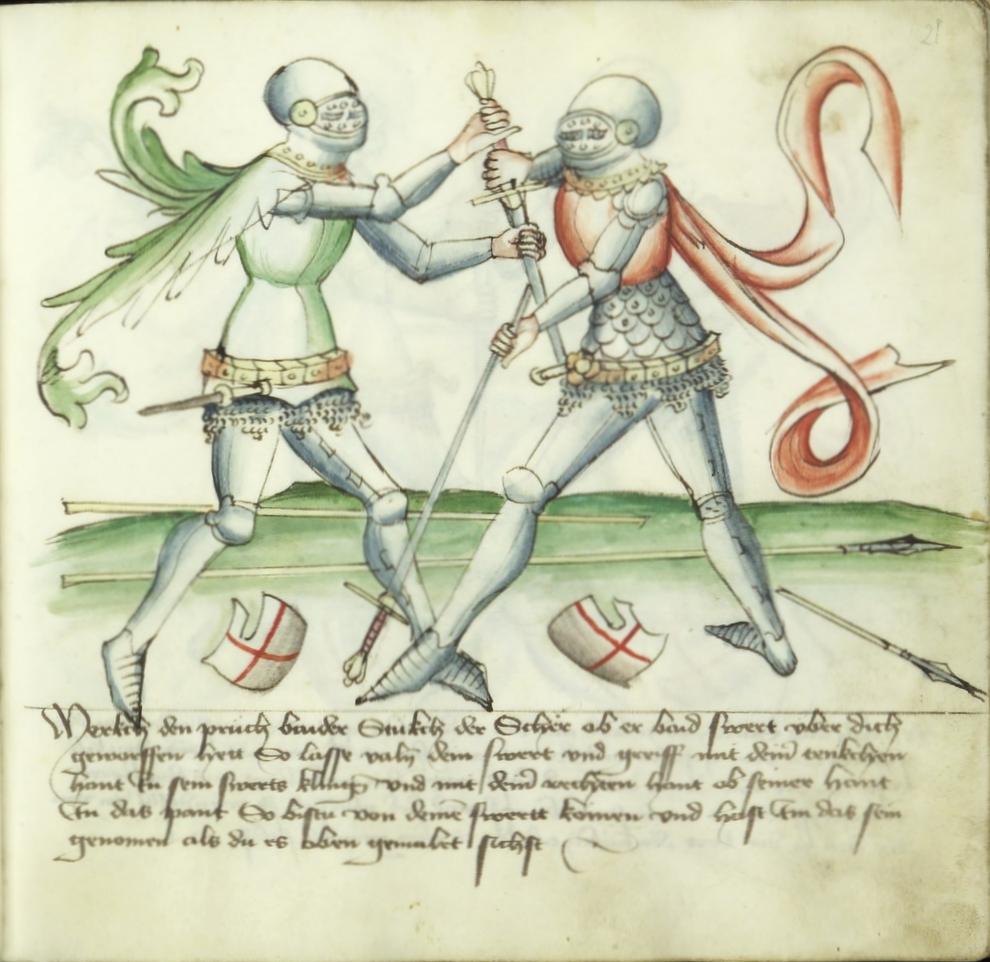 21
Merkch den pruch wider Stukch der Scher ob er baid swert vber dich
geworffen hett So lasse valn dein swert vnd greiff mit deiner tenkchen
hant In sein swerts kling vnd mit deiner rechten hant ob seiner hant
In das pant So bistu von deinem swertt komen vnd hast Im das sein
genomen als du es oben gemalet sichst